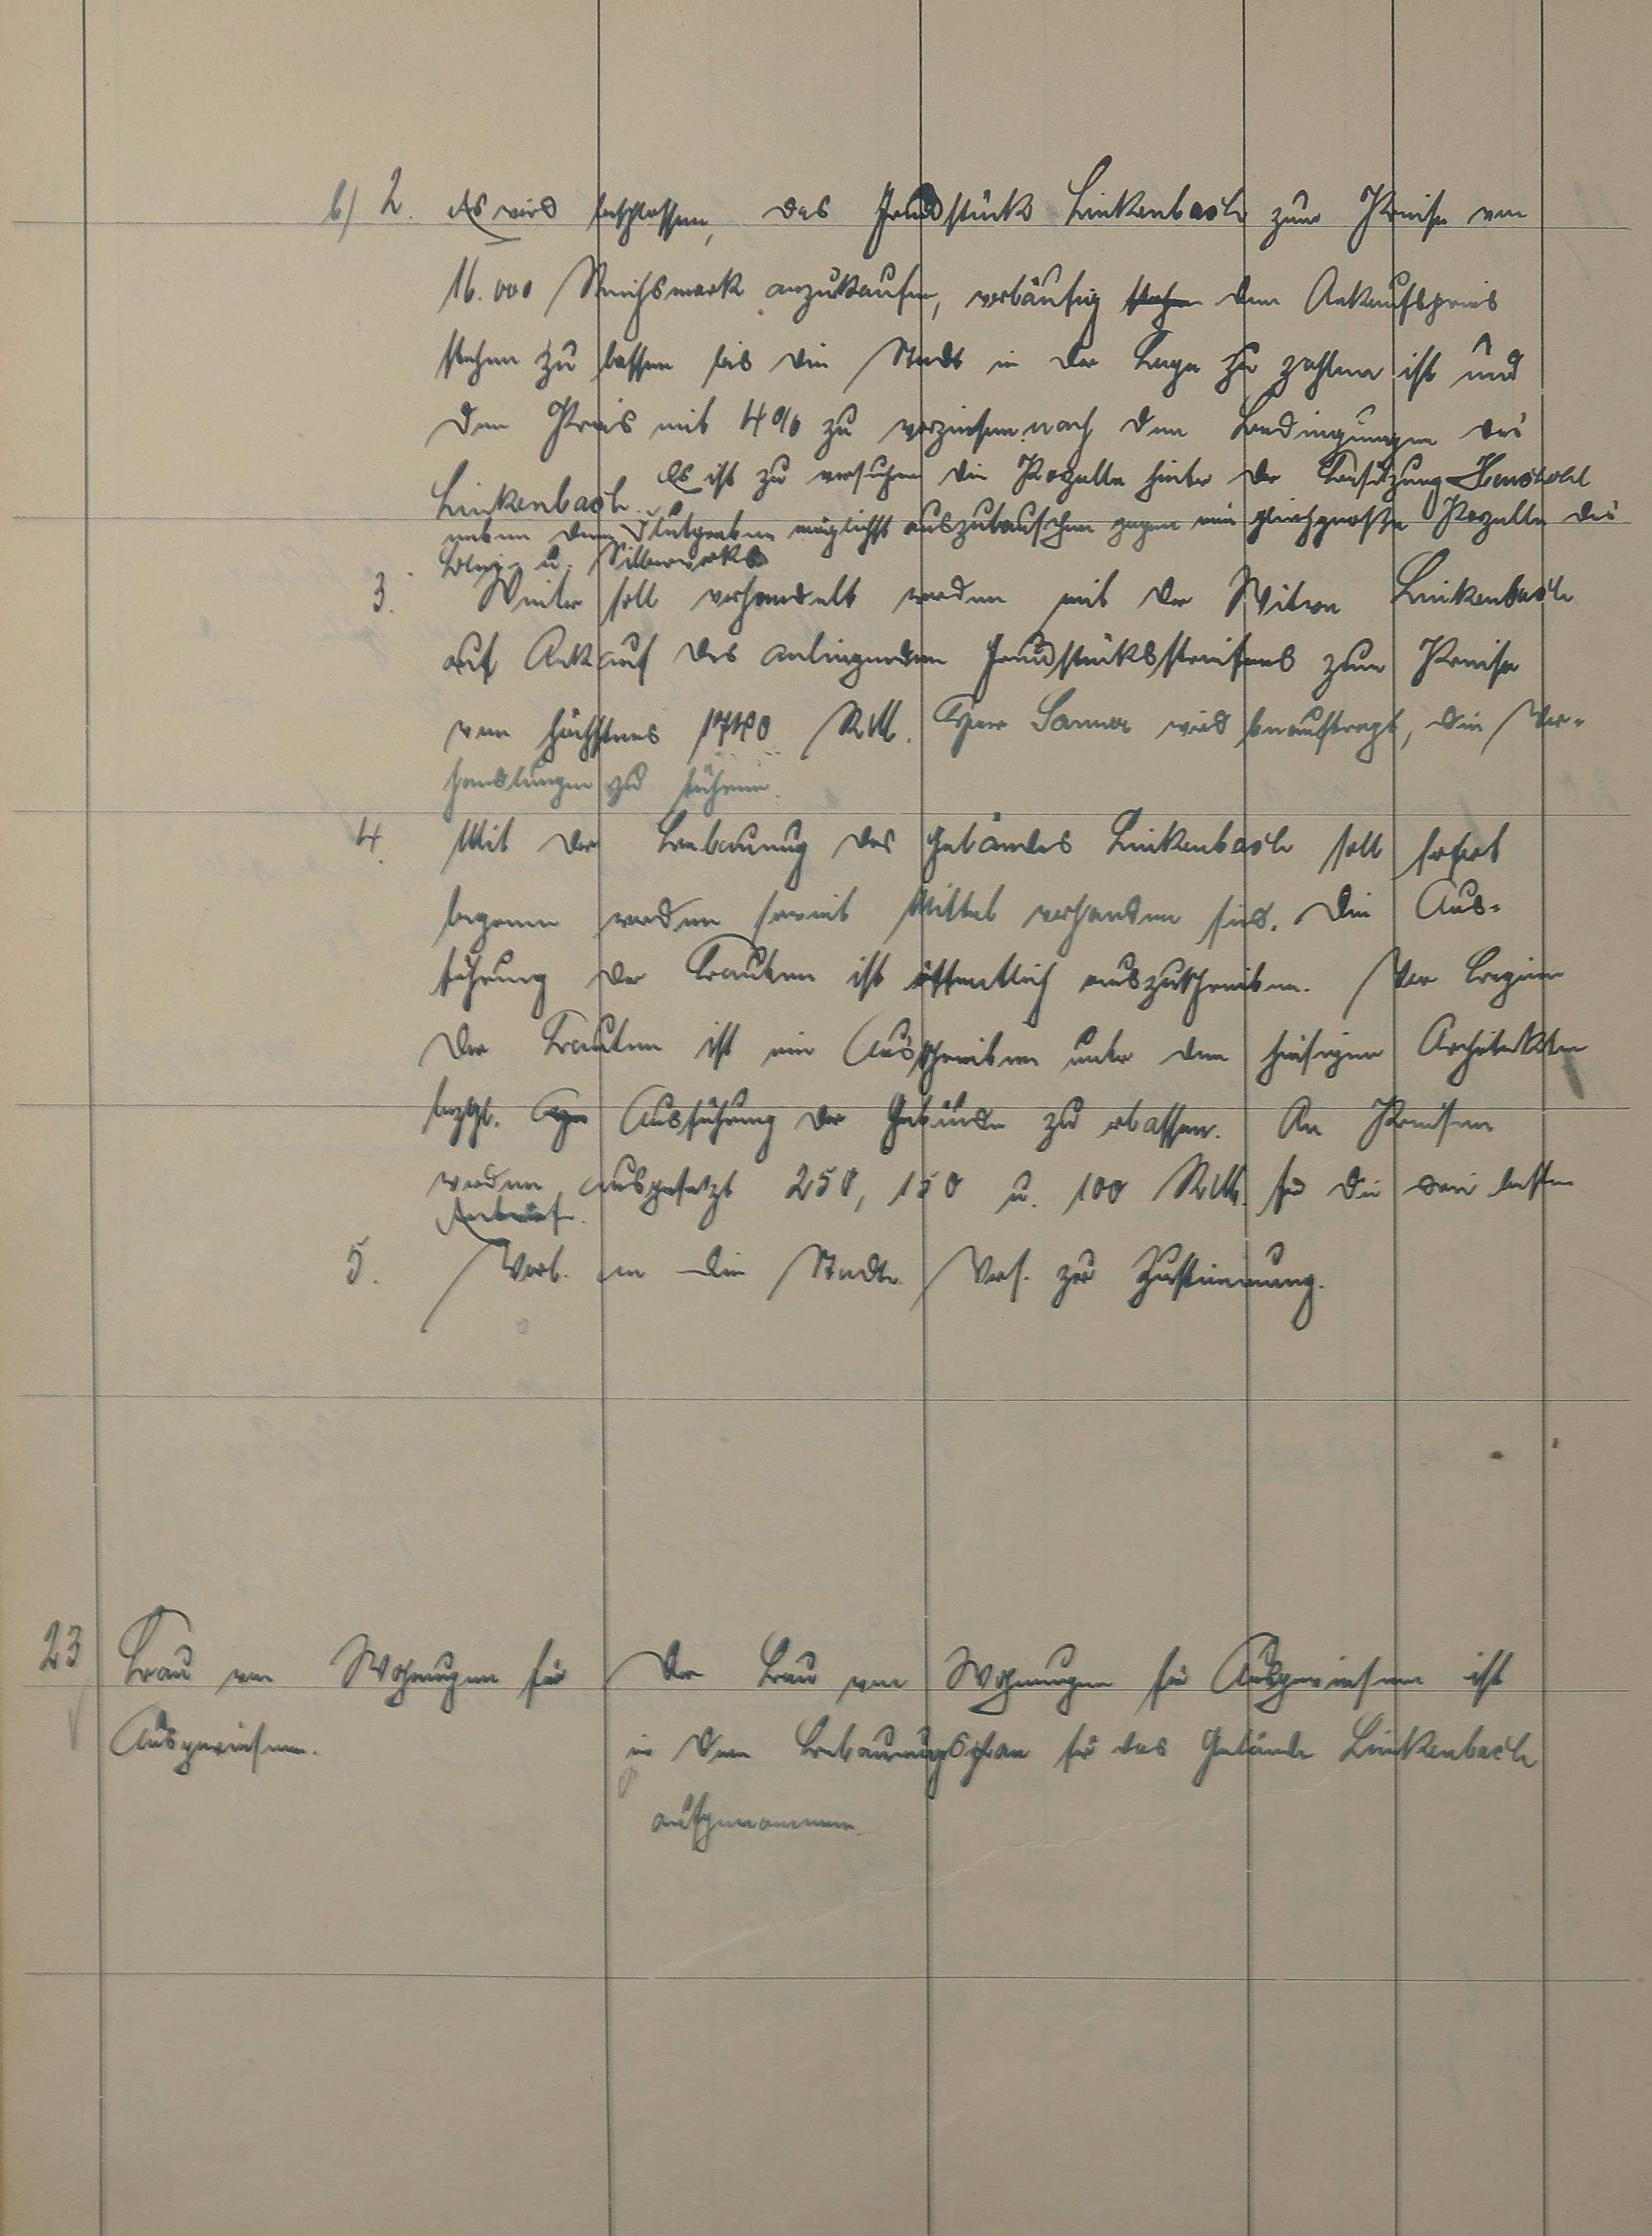 b) 2. Es wird beschlossen, das Grundstück Linkenbach zum Preise von
16.000 Reichsmark anzukaufen, vorläufig den Ankaufspreis
stehen zu lassen bis die Stadt in der Lage zu zahlen ist und
den Preis mit 4% zu verzinsen nach den Bedingungen des
Linkenbach. Es ist zu versuchen die Parzelle hinter der Besitzung Henseld
neben dem Flutgraben möglichst auszutauschen gegen eine gleichgroße Parzelle des
Blei- u. Silberwerks
3. Weiter soll verhandelt werden mit der Witwe Linkenbach
auf Ankauf des anliegenden Grundstücksstreifens zum Preise
von höchstens 1740 RM. Herr Sanner wird beauftragt, die Ver-
handlungen zu führen.
4. Mit der Bebauung des Geländes Linkenbach soll sofort
begonnen werden soweit Mittel vorhanden sind. Die Aus-
führung der Bauten ist öffentlich auszuschreiben. Vor Beginn
der Bauten ist ein Ausschreiben unter den hiesigen Architekten
bezgl. Ausführung der Gebäude zu erlassen. An Preisen
werden ausgesetzt 250, 150 u. 100 RM. für die drei besten
Entwürfe.
5. Vorl. an die Stadtv. Vers. zur Zustimmung.
23 Bau von Wohnungen für
Ausgewiesene.
Der Bau von Wohnungen für Ausgewiesene ist
in dem Bebauungsplan für das Gelände Linkenbach
aufgenommen.